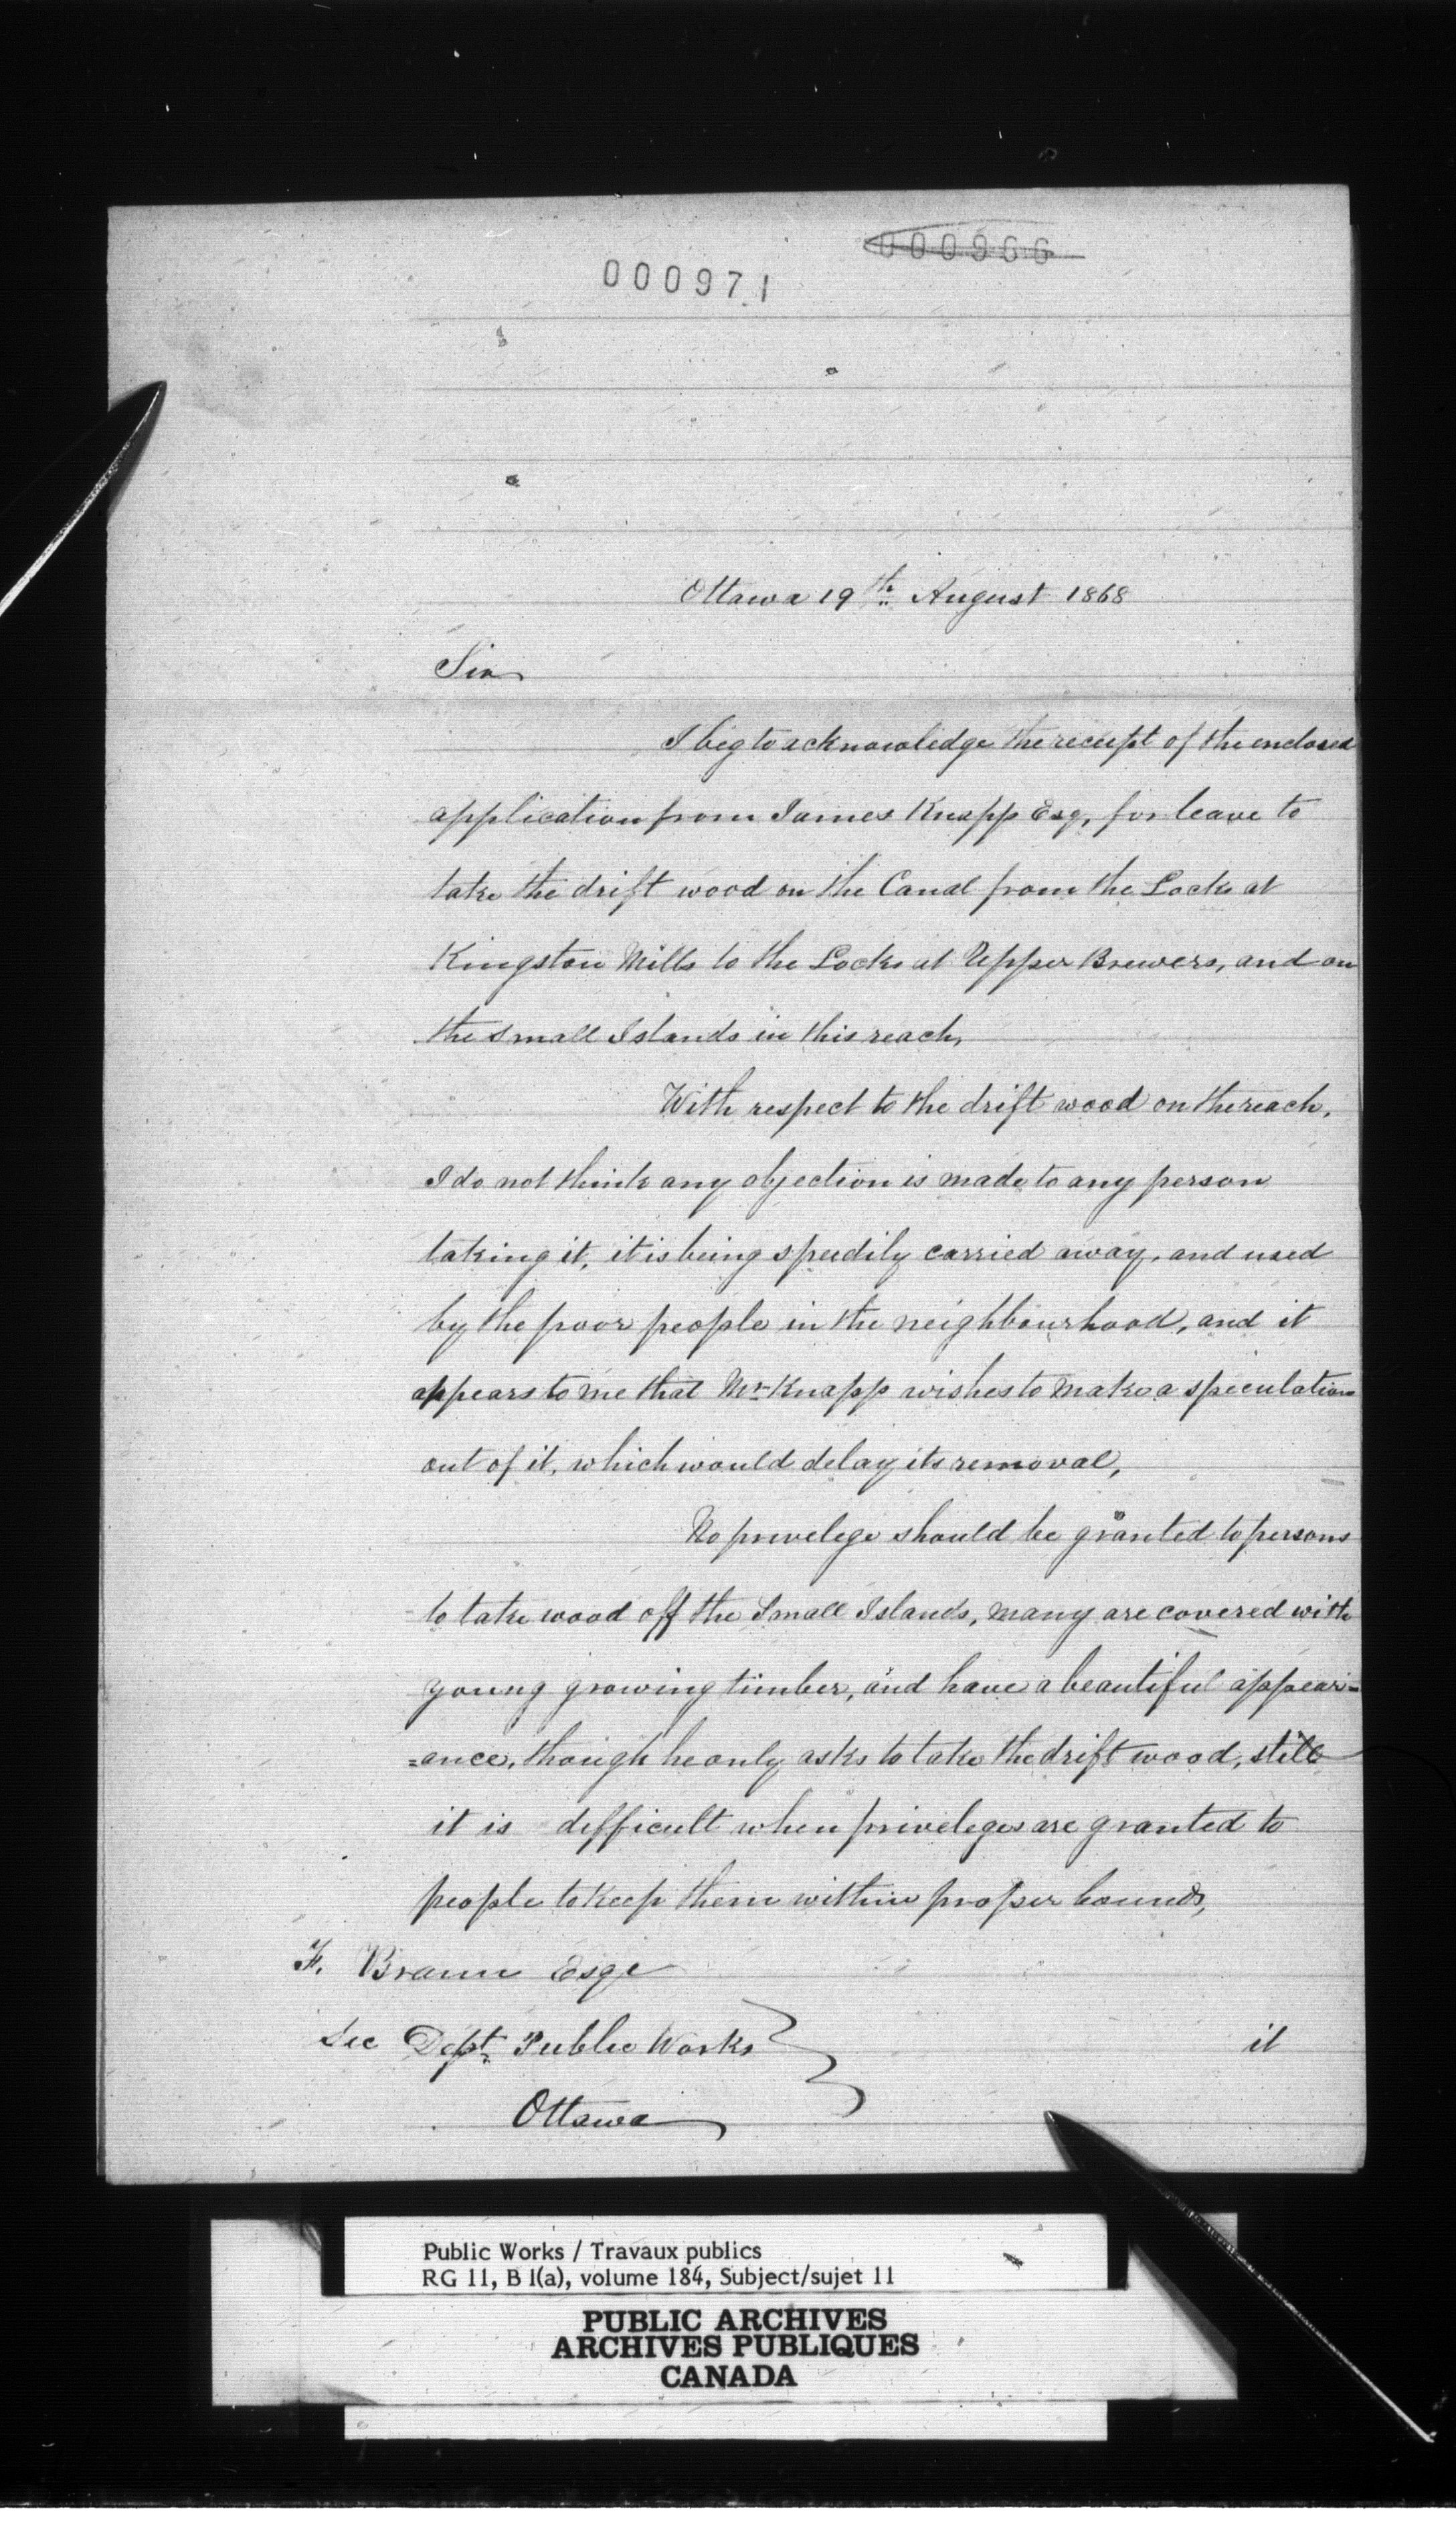 000966
000971
Ottawa 19th August 1868
Sir
I beg to acknowledge the receipt of the enclosed
application from James Knapp Esq, for leave to
take the drift wood on the Canal from the Locks at
Kingston Mills to the Locks at Upper Brewers, and on
the small Islands in this reach,
With respect to the drift wood on the reach,
I do not think any objection is made to any person
taking it, it is being speedily carried away, and used
by the poor people in the neighbourhood, and it
appears to me that Mr Knapp wishes to make a speculation
out of it, which would delay its removal,
No privelege should be granted to persons
to take wood off the Small Islands, many are covered with
young growing timber, and have a beautiful appear=
=ance, though he only asks to take the drift wood, still
it is difficult when priveleges are granted to
people to keep them within proper bounds,
F. Braun Esqe
Sec Dept. Public Works
it
Ottawa
Public Works / Travaux publics
RG 11, B 1(a), volume 184, Subject/sujet 11
PUBLIC ARCHIVES
ARCHIVES PUBLIQUES
CANADA